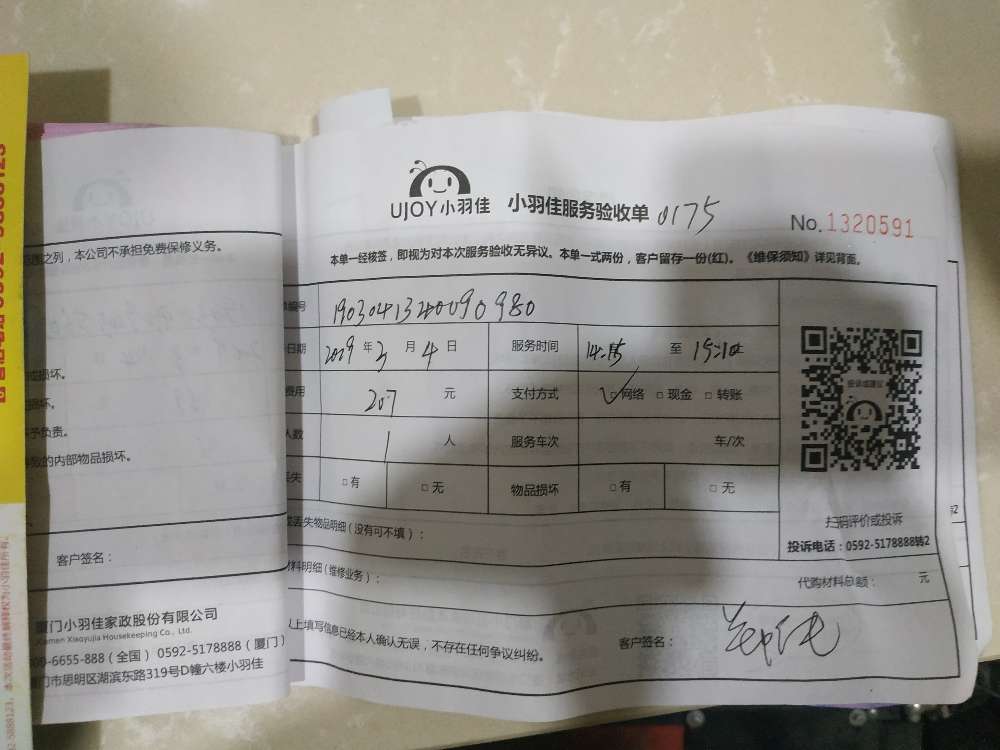 UJOY小羽佳 小羽佳服务验收单 0175
No.1320591
本单一经核签，即视为对本次服务验收无异议。本单一式两份，客户留存一份(红)。《维保须知》详见背面。
编号 1903041340090980
日期 2019 年 3 月 4 日 服务时间 14:15 至 15:10
费用 207 元 支付方式 □网络 □现金 □转账
人数 1 人 服务车次 车/次
丢失 □有 □无 物品损坏 □有 □无
丢失物品明细（没有可不填）：
材料明细（维修业务）：
代购材料总额： 元
以上填写信息已经本人确认无误，不存在任何争议纠纷。
客户签名：
投诉或建议
扫码评价或投诉
投诉电话：0592-5178888转2
UJOY小羽
之列，本公司不承担免费保修义务。
损坏。
损坏。
不予负责。
导致的内部物品损坏。
客户签名：
厦门小羽佳家政股份有限公司
Xiamen Xiaoyujia Housekeeping Co., Ltd.
00-6655-888（全国）0592-5178888（厦门）
厦门市思明区湖滨东路319号D幢六楼小羽佳